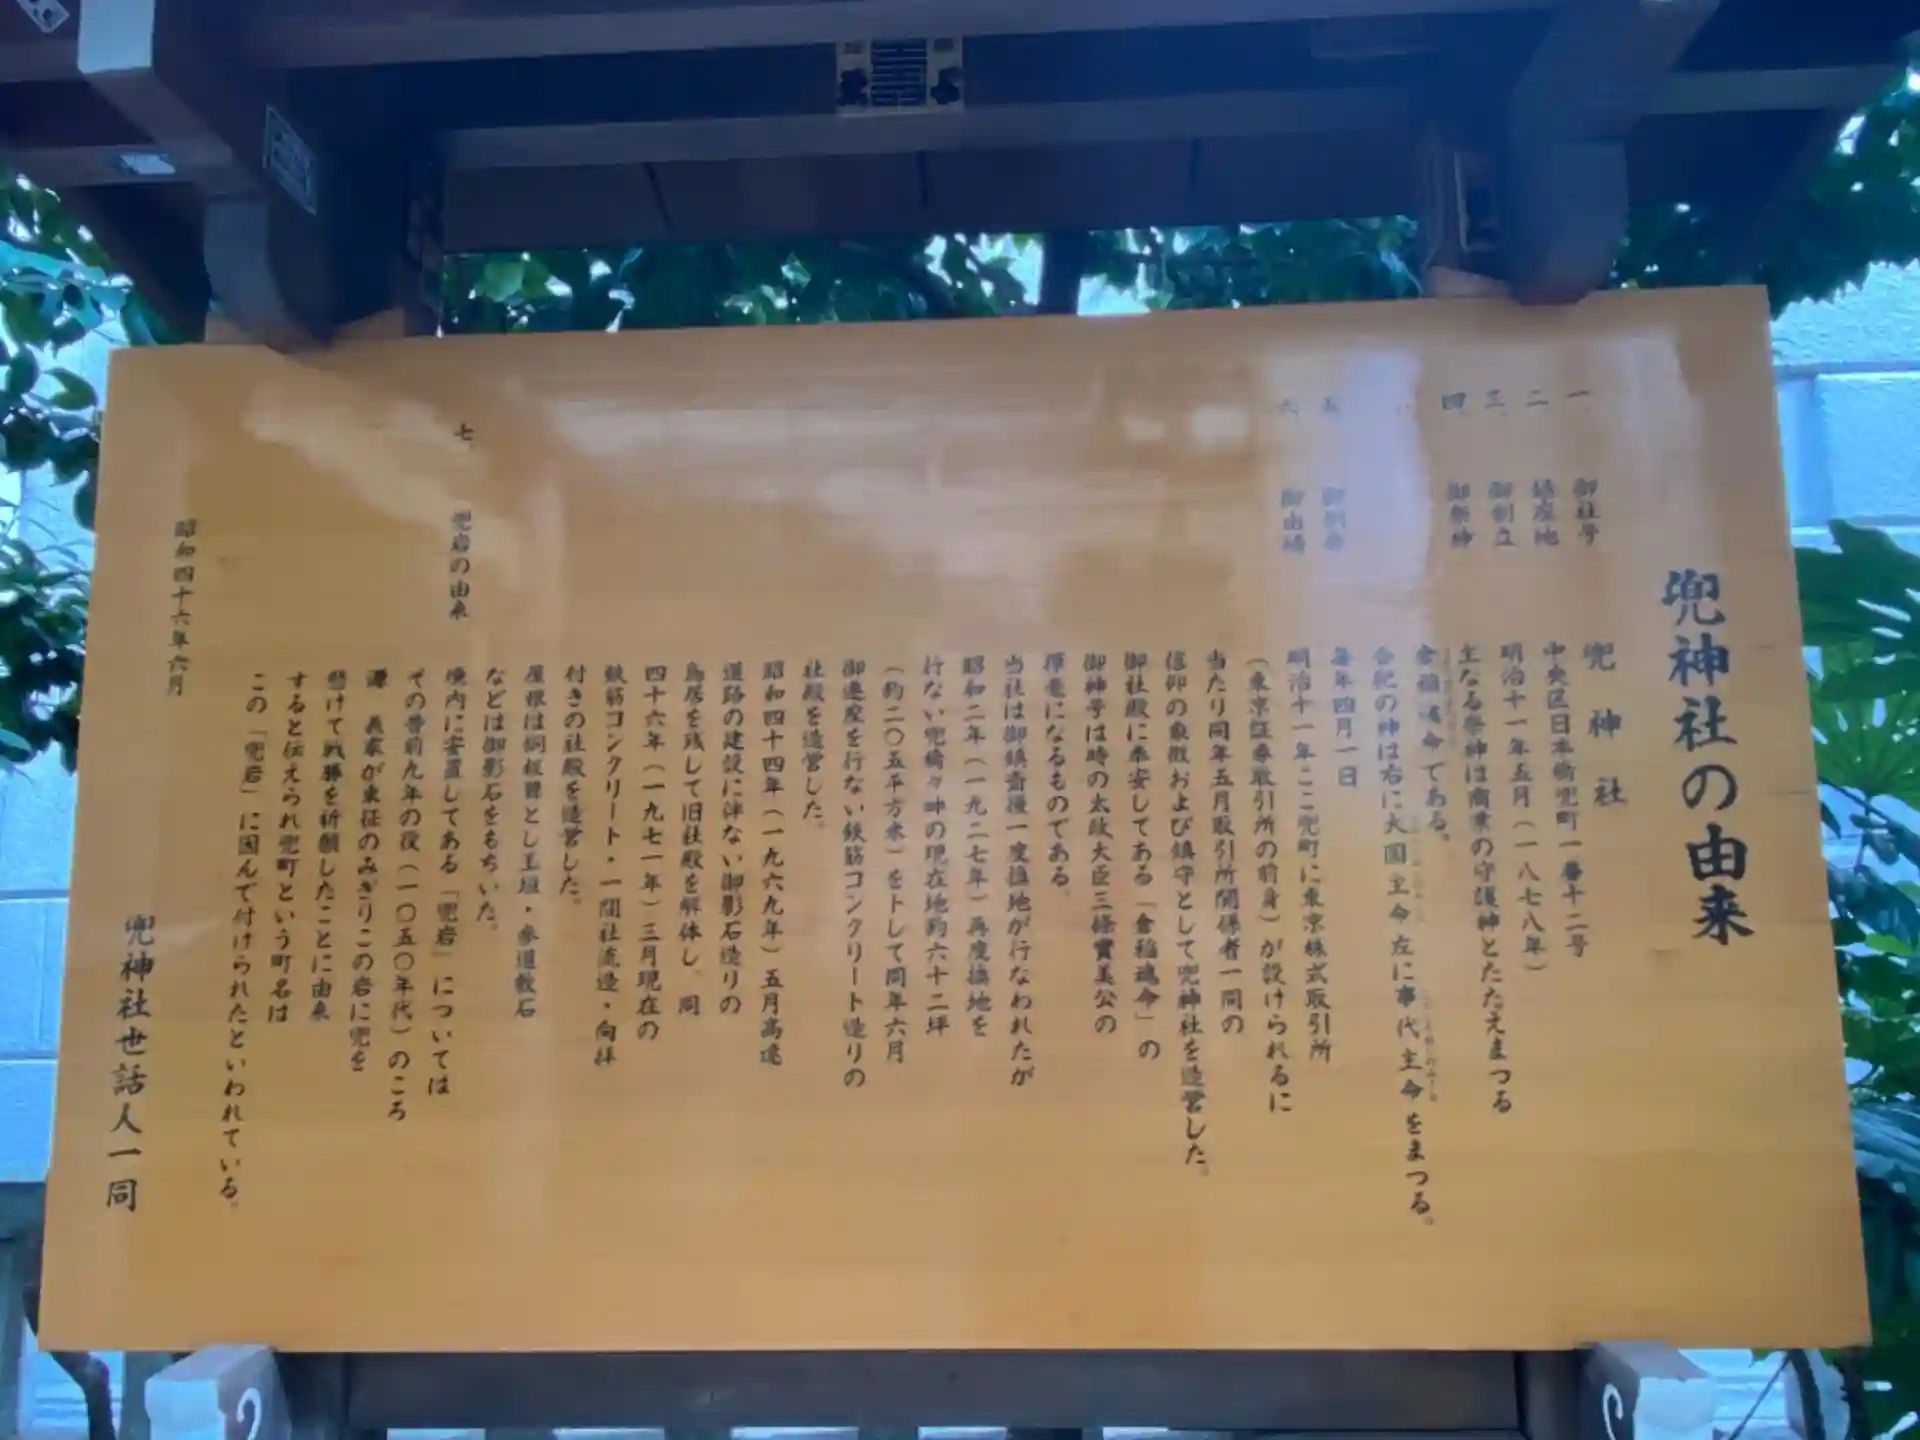 兜神社の由来
一、御社号 兜神社
二、鎮座地 中央区日本橋兜町一番十二号
三、御創立 明治十一年五月(一八七八年)
四、御祭神 主なる祭神は商業の守護神とたたえまつる
倉稲魂命である。
合祀の神は右に大国主命 左に事代主命をまつる。
五、御例祭 毎年四月一日
六、御由緒 明治十一年ここ兜町に東京株式取引所
(東京証券取引所の前身)が設けられるに
当たり同年五月取引所関係者一同の
信仰の象徴および鎮守として兜神社を造営した。
御社殿に奉安してある「倉稲魂命」の
御神号は時の太政大臣三條實美公の
揮毫になるものである。
当社は御鎮斎後一度換地が行なわれたが
昭和二年(一九二七年)再度換地を
行ない兜橋々畔の現在地約六十二坪
(約二〇五平方米)をトして同年六月
御遷座を行ない鉄筋コンクリート造りの
社殿を造営した。
昭和四十四年(一九六九年)五月高速
道路の建設に伴ない御影石造りの
鳥居を残して旧社殿を解体し、同
四十六年(一九七一年)三月現在の
鉄筋コンクリート・一間社流造・向拝
付きの社殿を造営した。
屋根は銅板葺とし玉垣・参道敷石
などは御影石をもちいた。
七、兜岩の由来 境内に安置してある「兜岩」については
その昔前九年の役(一〇五〇年代)のころ
源 義家が東征のみぎりこの岩に兜を
懸けて戦勝を祈願したことに由来
すると伝えられ兜町という町名は
この「兜岩」に因んで付けられたといわれている。
昭和四十六年六月
兜神社世話人一同